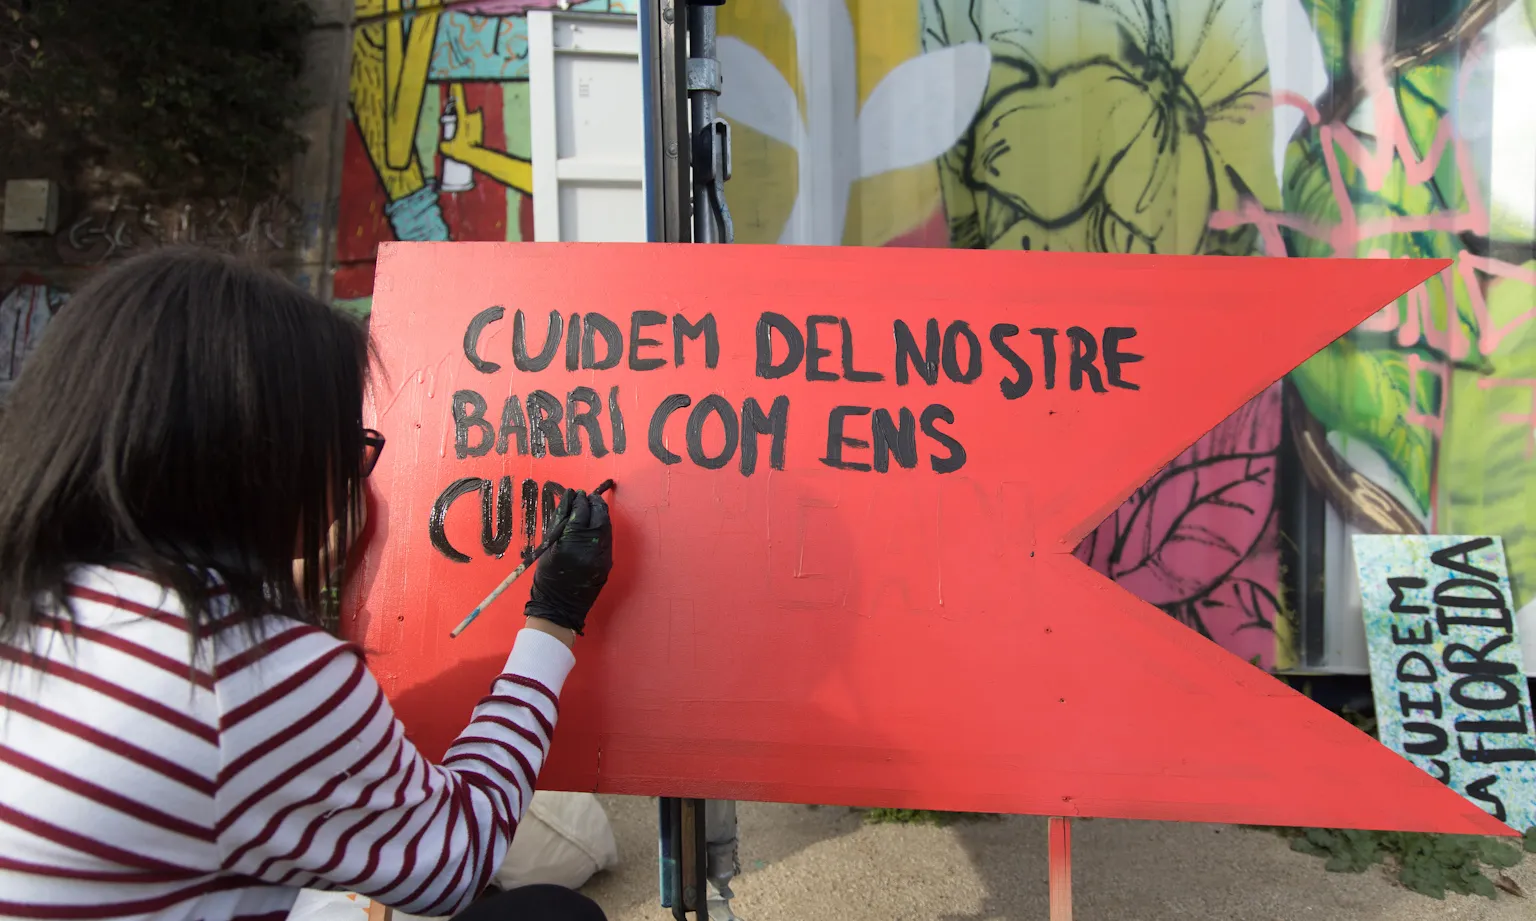 CUIDEM DEL NOSTRE
BARRI COM ENS
CUID
CUIDEM
LA FLORIDA